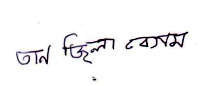 তান জিলা বেগম